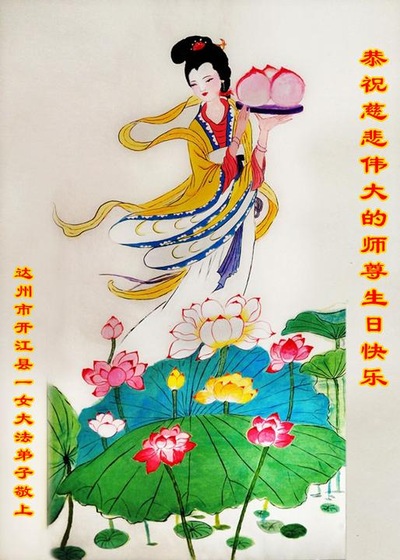 恭祝慈悲伟大的师尊生日快乐
达州市开江县一女大法弟子敬上